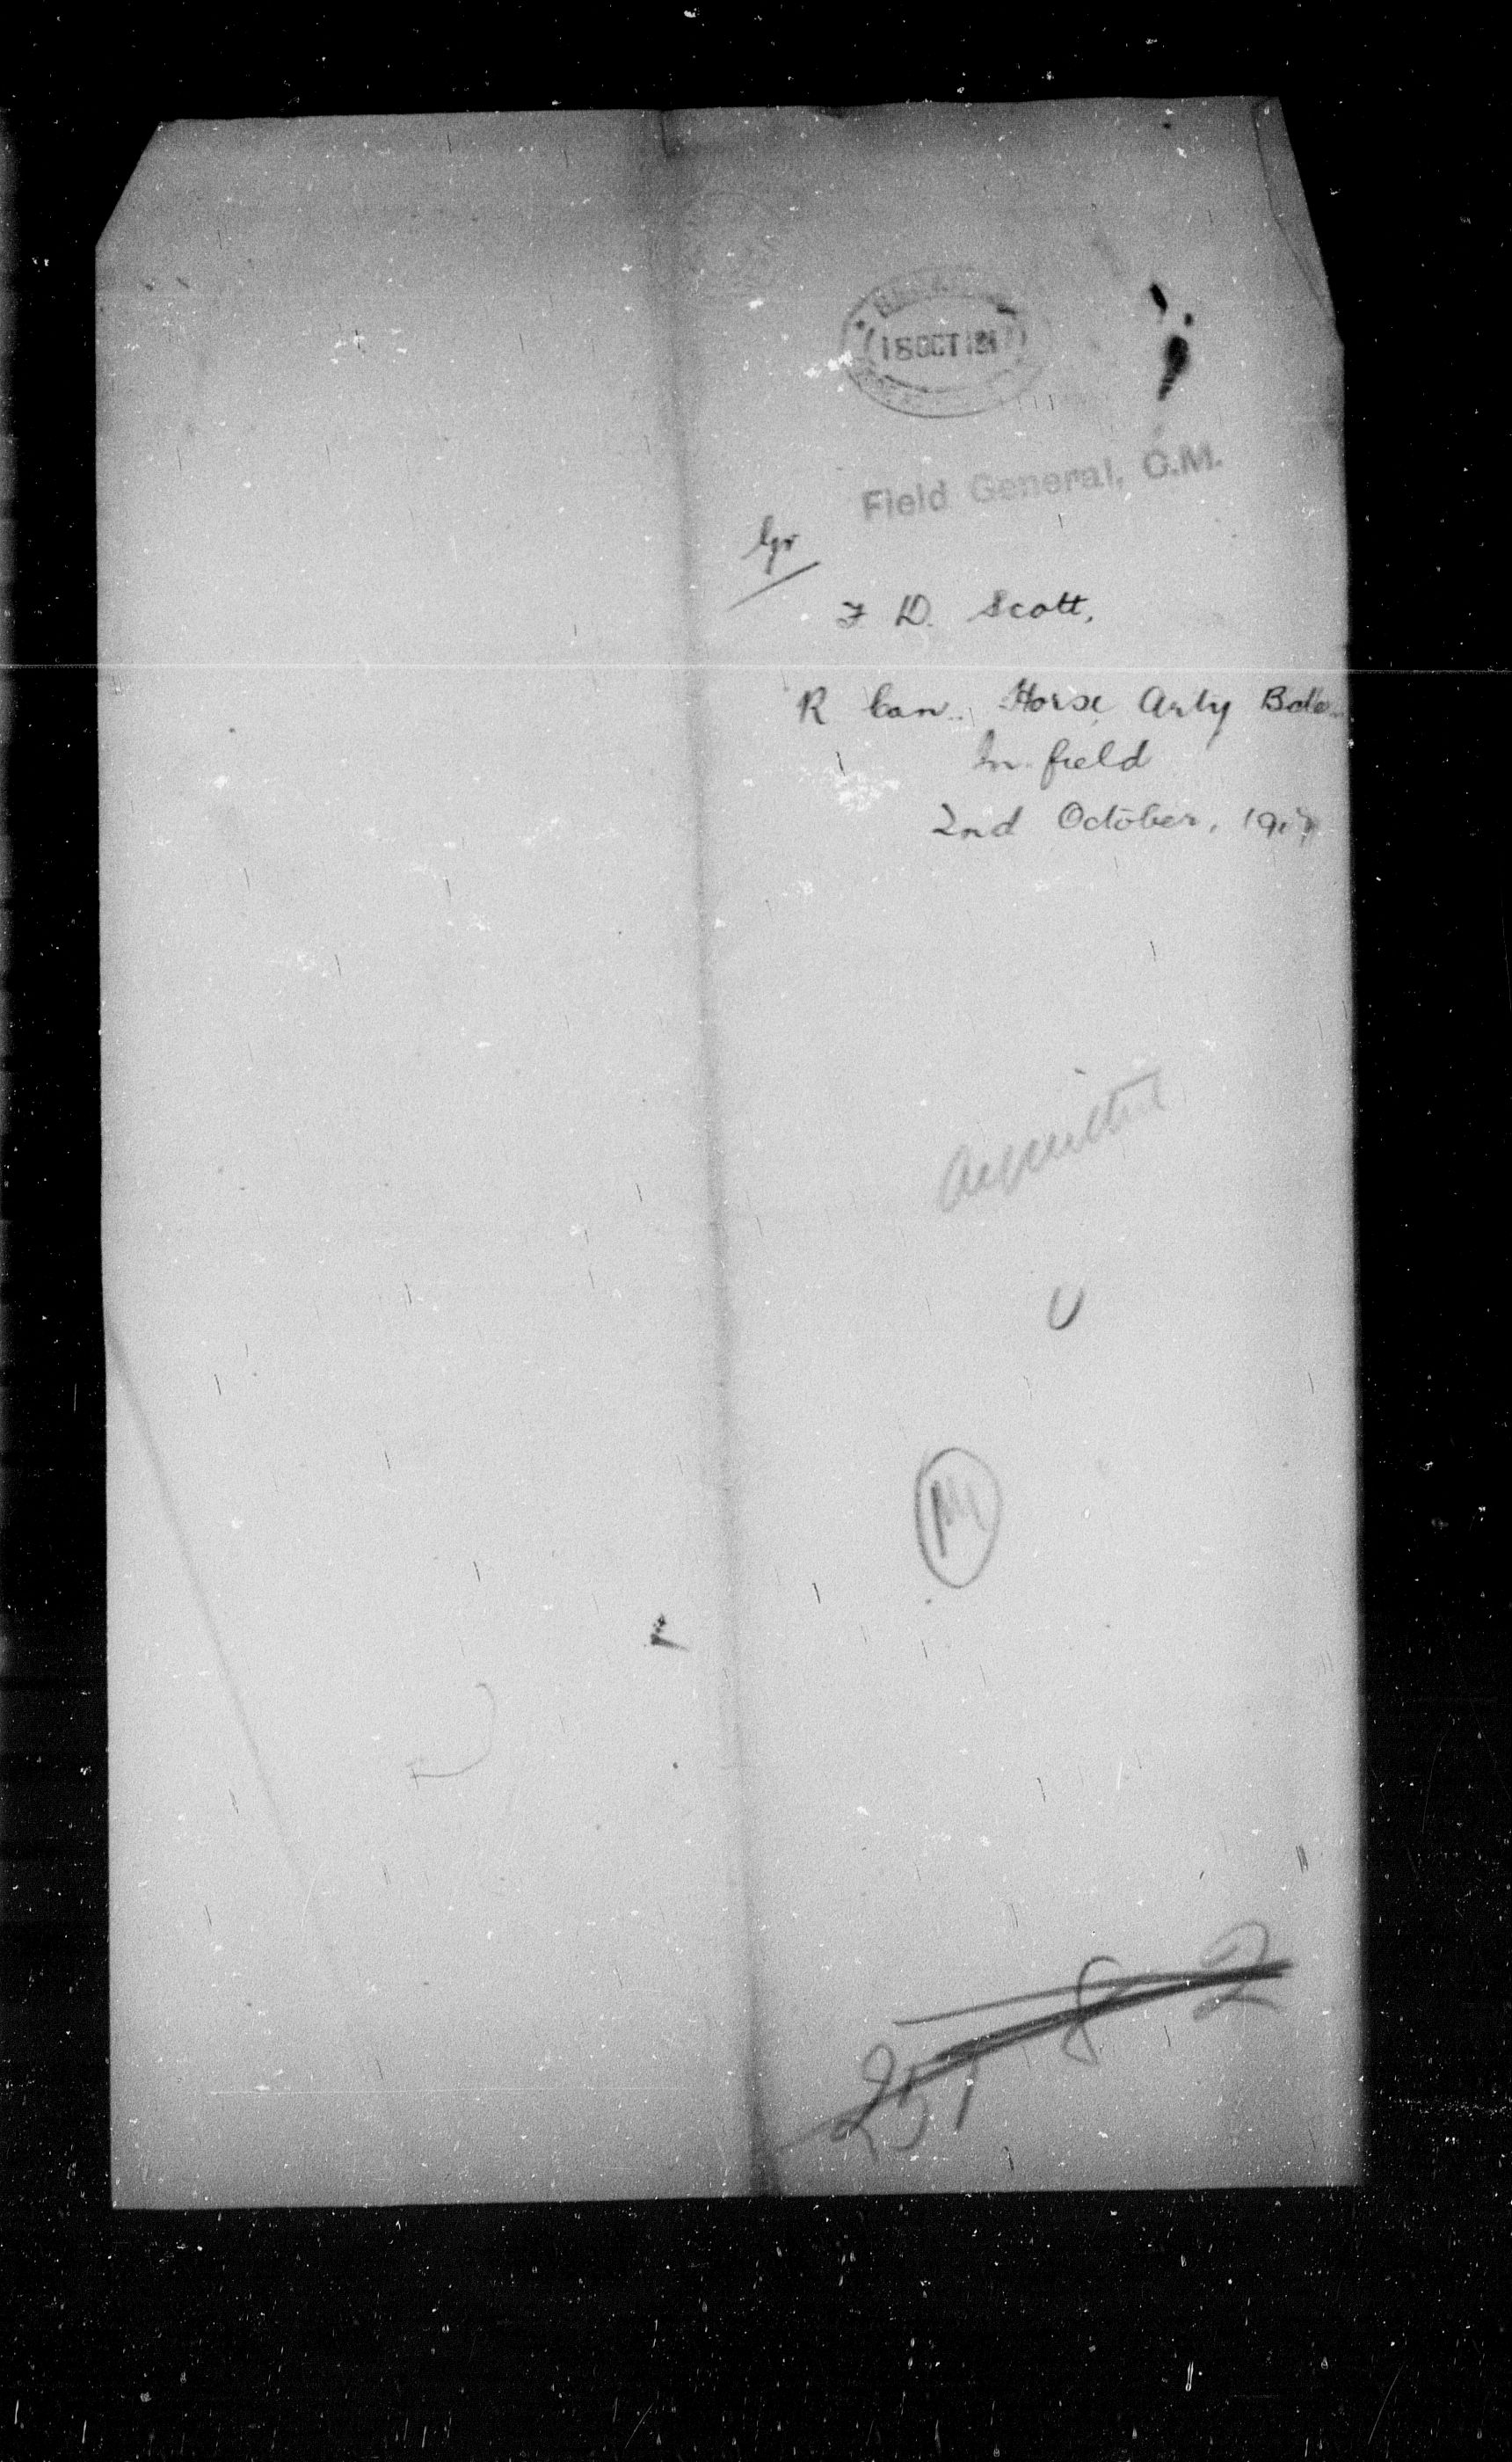 18 OCT 191
Field General, C.M.
Gr
F. D. Scott,
R Can. Horse Arty Bde.
In field
2nd October, 1917
Acquitted
U
M
251 8 2